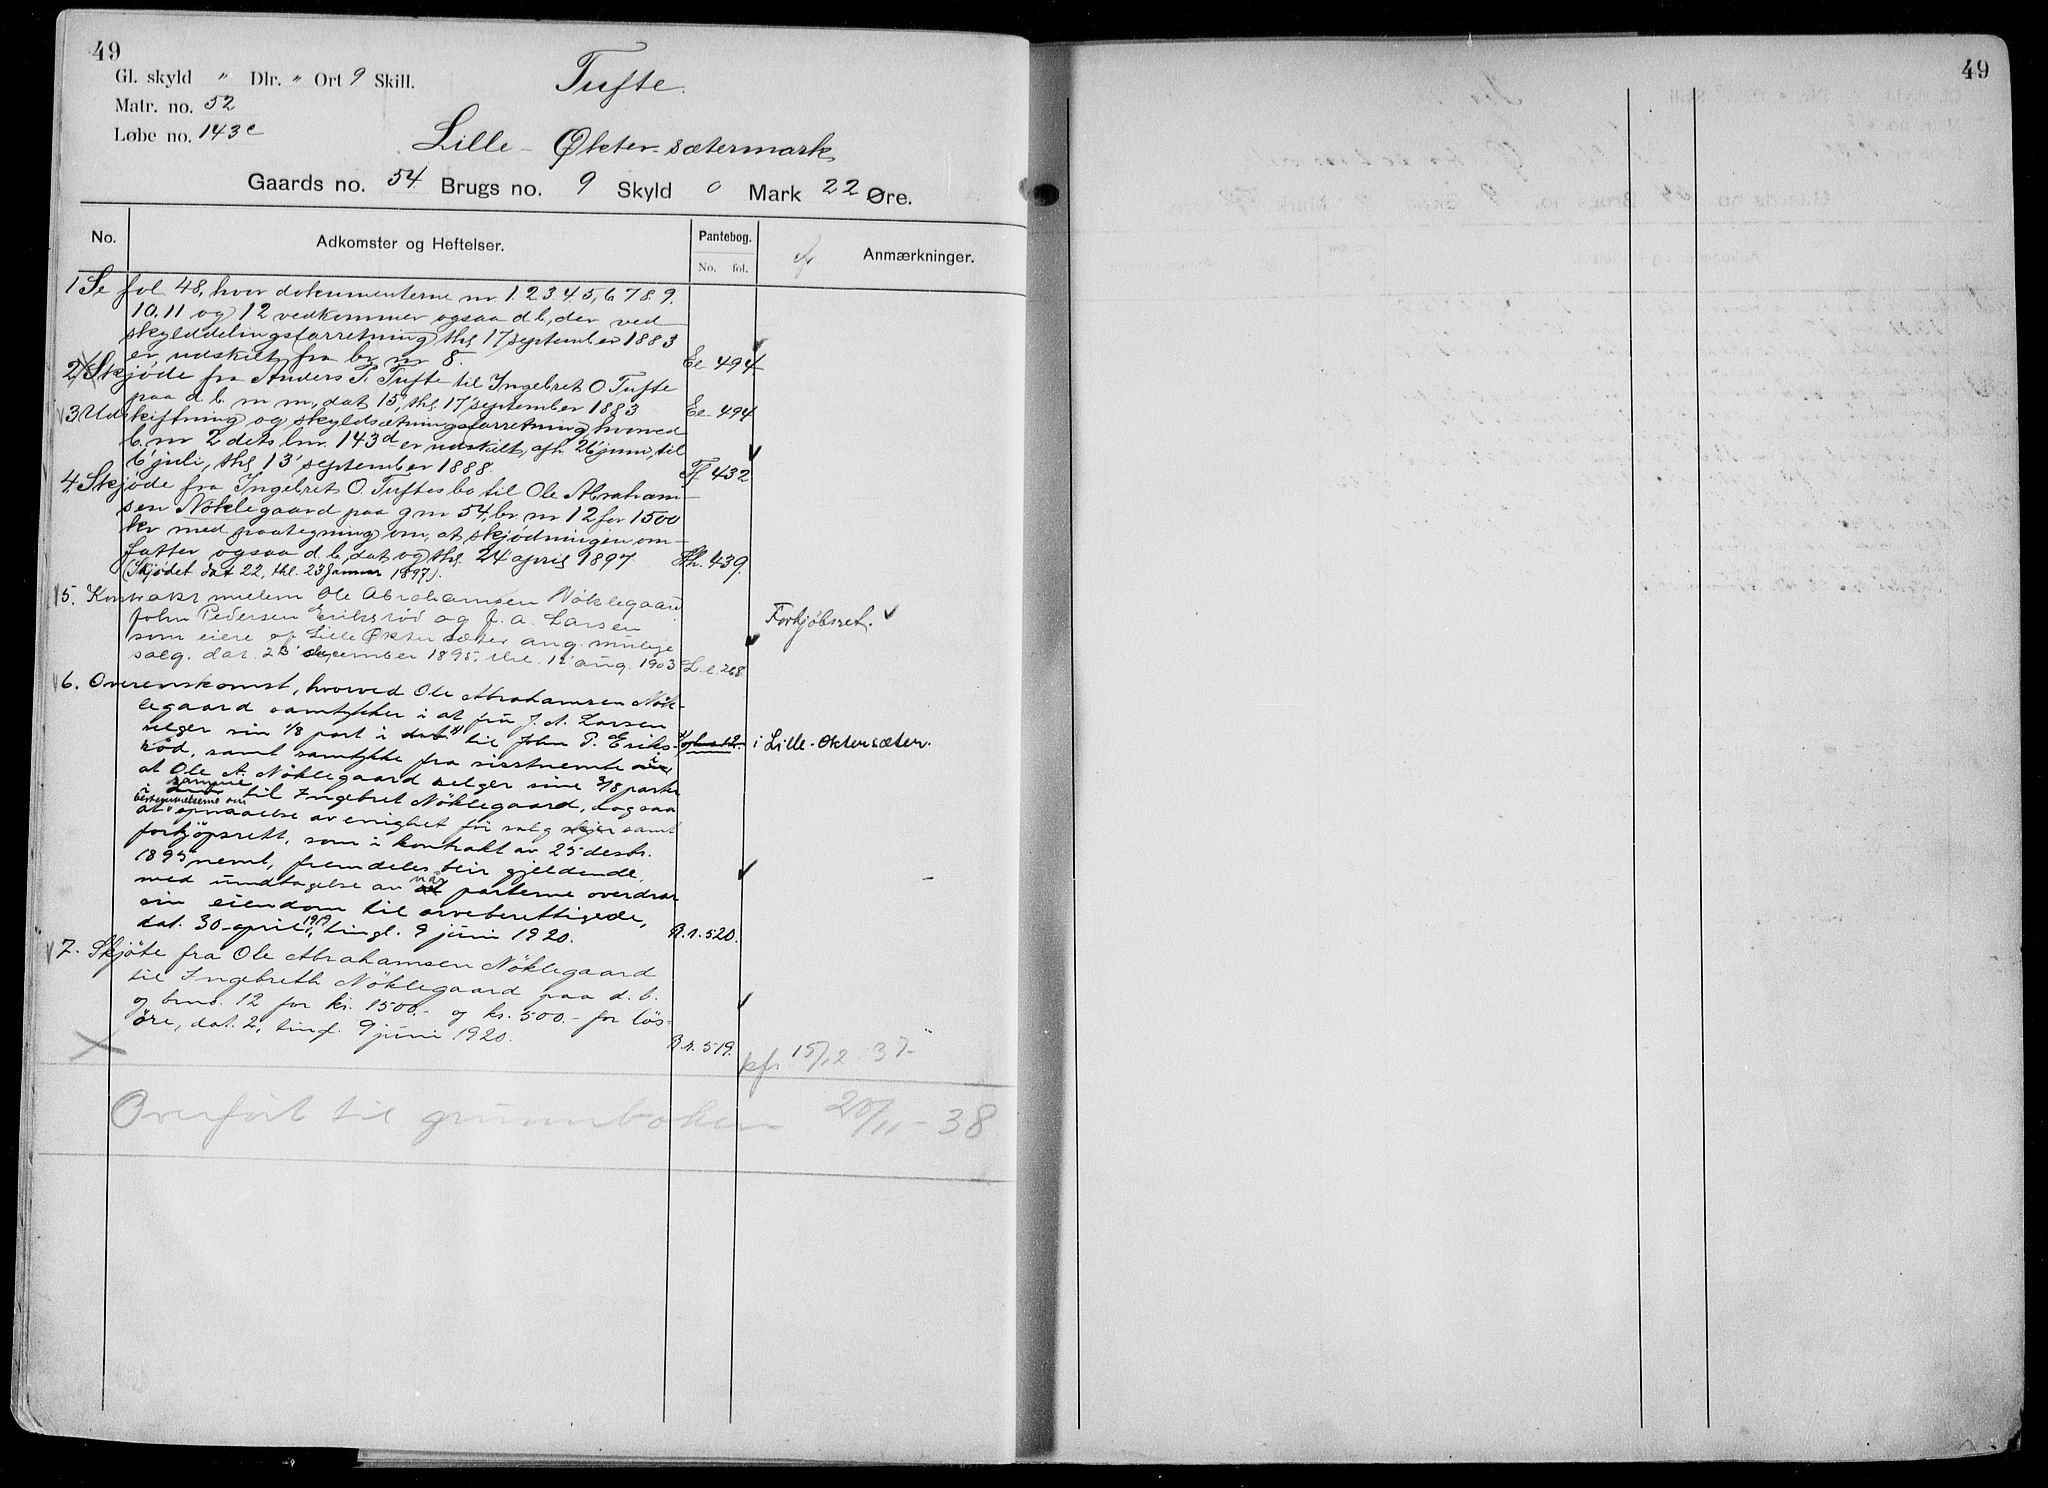 49
Gl. skyld " Dlr. " Ort 9 Skill.
Tufte.
Matr. no. 52
Løbe no. 143c
Lille-Økter-sætermark
Gaards no. 54 Brugs no. 9 Skyld 0 Mark 22 Øre.
No. Adkomster og Heftelser. Pantebog. No. fol. Anmærkninger.
1 Se fol 48, hvor dokumenterne nr 1.2.3.4.5,6.7.8.9.
10, 11 og 12 vedkommer ogsaa d b, der ved
skylddelingsforretning thl 17 september 1883
er udskilt fra br nr 8. Ee 494
2 Skjøde fra Anders P. Tufte til Ingebret O Tufte
paa d b m m, dat 15, thl 17 september 1883 Ee 494
3 Udskiftning og skyldsætningsforretning hvorved
b. nr 2 dets lnr. 143d er udskilt, afh 26 juni, til
6' juli, thl 13' september 1888. Ff 432
4 Skjøde fra Ingebret O. Tuftes bo til Ole Abraham-
sen Nöklegaard paa gnr 54, br. nr 12 for 1500
kr med paategning om, at skjødningen om-
fatter ogsaa d b, dat og thl 24 april 1897.
(Skjødet dat 22, thl. 23 Januar 1897). Hh. 439.
5. Kontrakt mellem Ole Abrahamsen Nöklegaard
John Pedersen Eriksrød og J. A. Larsen Forkjøbsret.
som eiere af Lille Økter sæter ang. mulige
salg. dat. 23' december 1895, thl. 12 aug. 1903 L.l. 268
6. Overenskomst, hvorved Ole Abrahamsen Nök-
legaard samtykker i at fru J. A. Larsen
selger sin 1/8 part i dat x) til John P. Eriks- x) og bno 12. i Lille-Øktersæter.
röd, samt samtykke fra sisstnemte i
at Ole A. Nöklegaard selger sine 3/8 parter
i samme til Ingebret Nöklegaard, dog saa
at bestemmelserne om opnaaelse av enighet för salg skjer samt
forkjöpsrett, som i kontrakt av 25 desbr.
1895 nemt, fremdeles blir gjeldende,
med undtagelse av når parterne overdrar
sin eiendom til arveberettigede,
dat. 30 april 1919, tingl. 9 juni 1920. R.r. 520.
7. Skjöte fra Ole Abrahamsen Nöklegaard
til Ingebreth Nöklegaard paa d. b.
og bno. 12 for kr. 1500.- og kr. 500.- for lös-
öre, dat. 2, tingl. 9 juni 1920. R.r. 519.
kfr 15/12. 37.
Overført til grunnboken 20/11-38
49